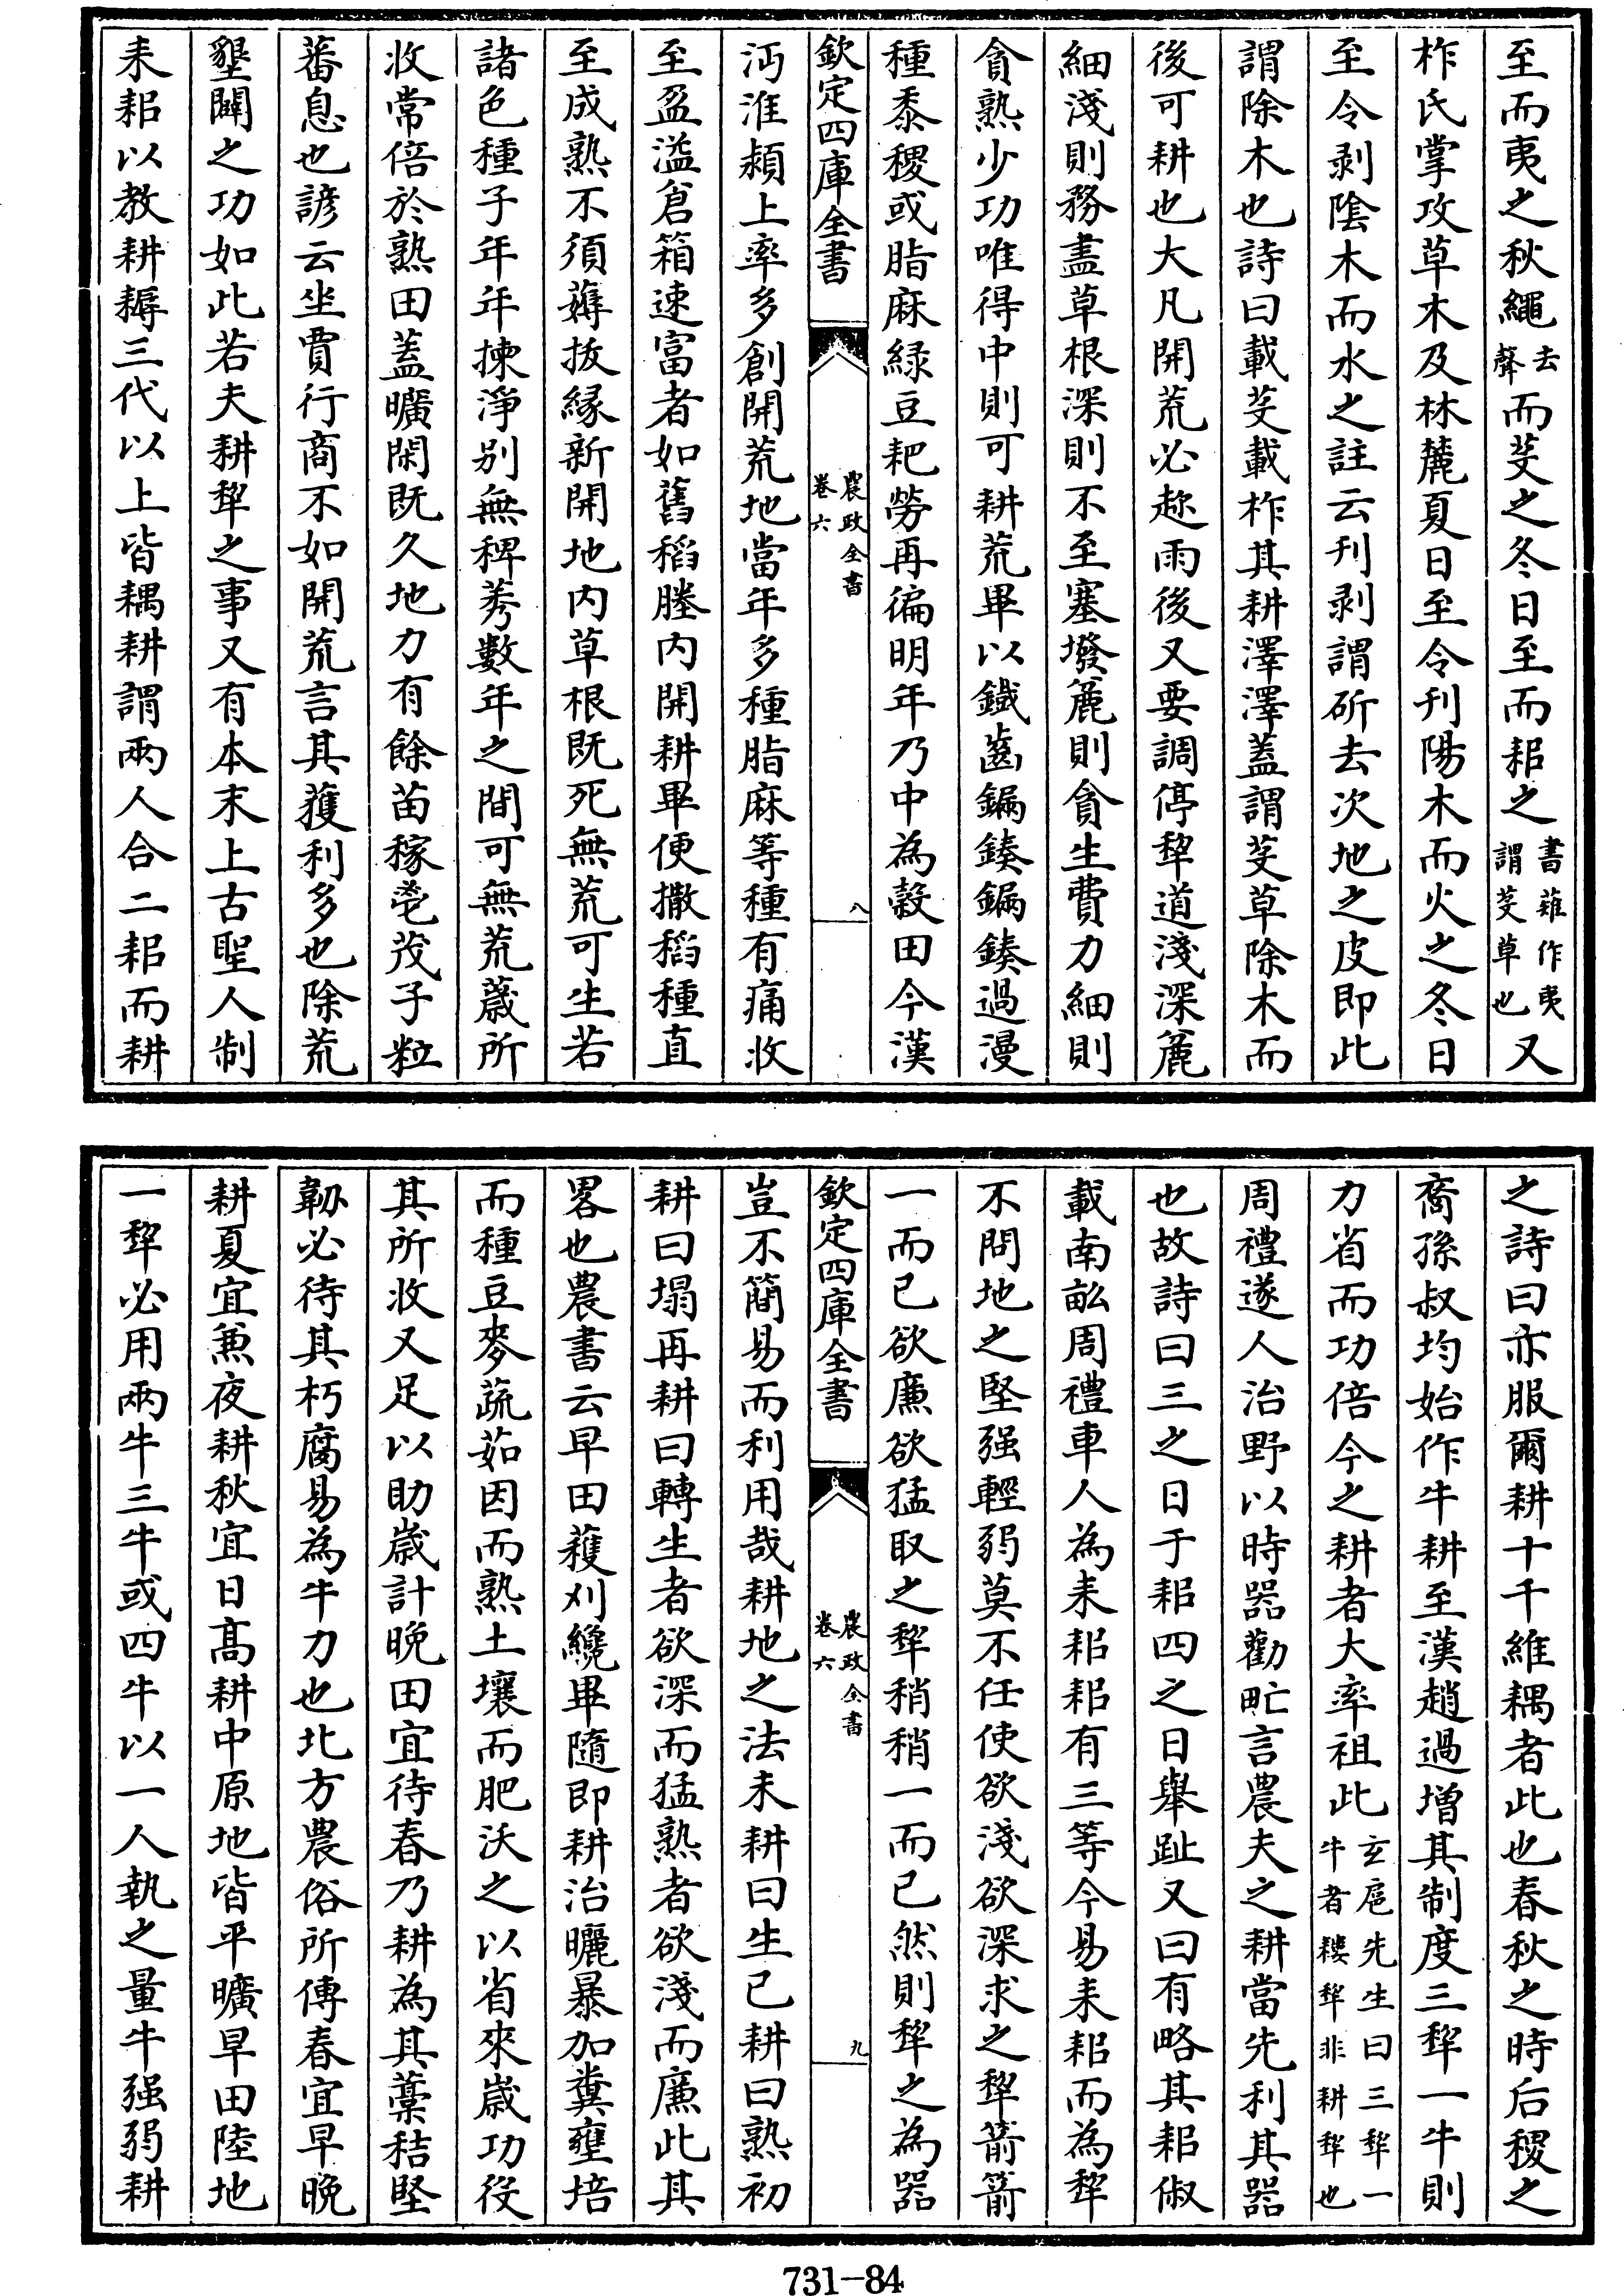 至而夷之秋繩去聲而芟之冬日至而耜之書薙作夷謂芟草也又
柞氏掌攻草木及林麓夏日至令刋陽木而火之冬日
至令剥隂木而水之註云刋剥謂斫去次地之皮即此
謂除木也詩曰載芟載柞其耕澤澤蓋謂芟草除木而
後可耕也大凡開荒必趂雨後又要調停犂道淺深麄
細淺則務盡草根深則不至塞墢麄則貪生費力細則
貪熟少功唯得中則可耕荒畢以鐵齒鍽鏤鍽鏤過漫
種黍稷或脂麻緑豆耙勞再徧明年乃中為榖田今漢
欽定四庫全書
農政全書
卷六
八
沔淮潁上率多創開荒地當年多種脂麻等種有痛收
至盈溢倉箱速富者如舊稻塍内開耕畢便撒稻種直
至成熟不須薅拔緣新開地内草根既死無荒可生若
諸色種子年年揀淨别無稗莠數年之間可無荒薉所
收常倍於熟田蓋曠閑既久地力有餘苗稼鬯茂子粒
蕃息也諺云坐賈行商不如開荒言其獲利多也除荒
墾闢之功如此若夫耕犂之事又有本末上古聖人制
耒耜以教耕耨三代以上皆耦耕謂兩人合二耜而耕
之詩曰亦服爾耕十千維耦者此也春秋之時后稷之
裔孫叔均始作牛耕至漢趙過增其制度三犂一牛則
力省而功倍今之耕者大率祖此玄扈先生曰三犂一牛者耬犂非耕犂也
周禮遂人治野以時器勸甿言農夫之耕當先利其器
也故詩曰三之日于耜四之日舉趾又曰有略其耜俶
載南畝周禮車人為耒耜耜有三等今易耒耜而為犂
不問地之堅强輕弱莫不任使欲淺欲深求之犂箭箭
一而已欲廉欲猛取之犂稍稍一而已然則犂之為器
欽定四庫全書
農政全書
卷六
九
豈不簡易而利用哉耕地之法未耕曰生已耕曰熟初
耕曰塌再耕曰轉生者欲深而猛熟者欲淺而廉此其
畧也農書云早田穫刈纔畢隨即耕治曬暴加糞壅培
而種豆麥蔬茹因而熟土壤而肥沃之以省來歲功役
其所收又足以助歲計晚田宜待春乃耕為其藁秸堅
韌必待其朽腐易為牛力也北方農俗所傳春宜早晚
耕夏宜兼夜耕秋宜日髙耕中原地皆平曠旱田陸地
一犂必用兩牛三牛或四牛以一人執之量牛强弱耕
731-84